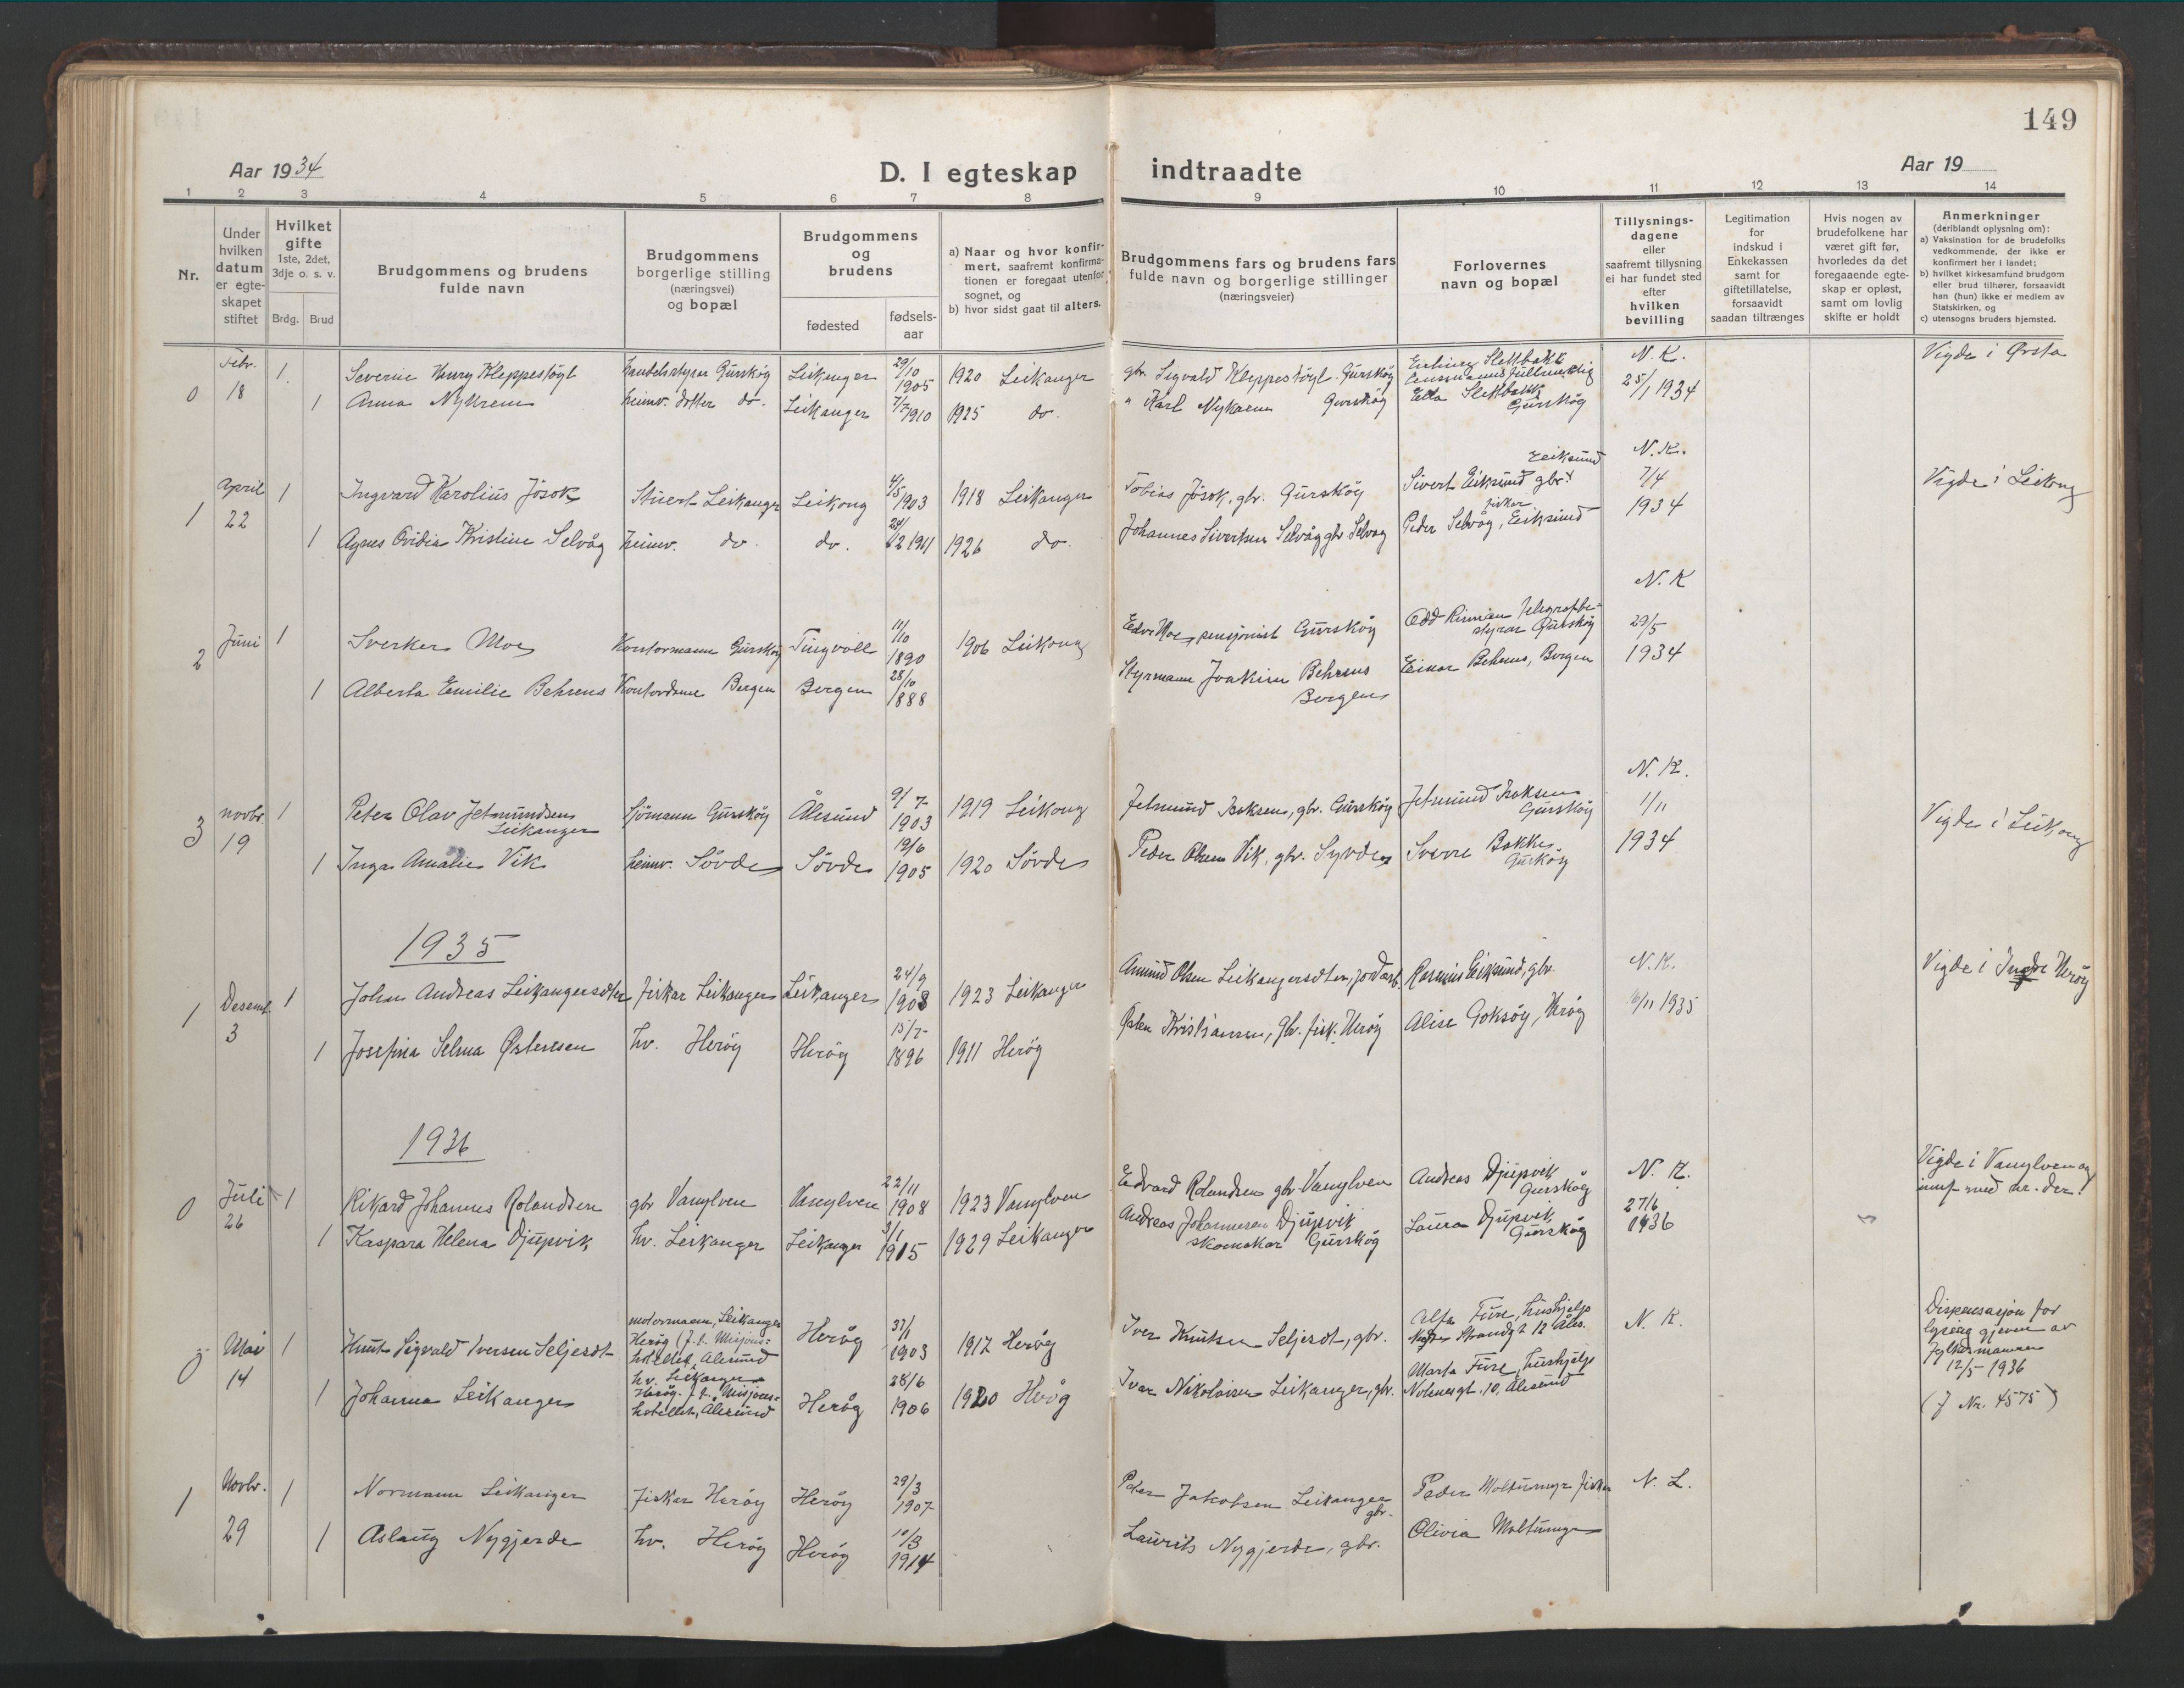 149
Aar 1934
D. I egteskap indtraadte
Aar 19
1 2 3 4 5 6 7 8 9 10 11 12 13 14
Nr.
Under hvilken datum er egteskapet stiftet
Hvilket gifte 1ste, 2det, 3dje o. s. v.
Brdg. Brud
Brudgommens og brudens fulde navn
Brudgommens borgerlige stilling (næringsvei) og bopæl
Brudgommens og brudens
fødested
fødsels-aar
a) Naar og hvor konfirmert, saafremt konfirmationen er foregaat utenfor sognet, og
b) hvor sidst gaat til alters.
Brudgommens fars og brudens fars fulde navn og borgerlige stillinger (næringsveier)
Forlovernes navn og bopæl
Tillysningsdagene eller saafremt tillysning ei har fundet sted efter hvilken bevilling
Legitimation for indskud i Enkekassen samt for giftetillatelse, forsaavidt saadan tiltrænges
Hvis nogen av brudefolkene har været gift før, hvorledes da det foregaaende egteskap er opløst, samt om lovlig skifte er holdt
Anmerkninger (deriblandt oplysning om):
a) Vaksination for de brudefolks vedkommende, der ikke er konfirmert her i landet;
b) hvilket kirkesamfund brudgom eller brud tilhører, forsaavidt han (hun) ikke er medlem av Statskirken, og
c) utensogns bruders hjemsted.
0 Febr. 18 1 Severin Henry Kleppestøyl Gurskøy Leikanger 29/10 1905 1920 Leikanger gbr. Sigvald Kleppestøyl Gurskøy Slettbakk N. K. Vigde i Ørsta
1 Anna Nykrem heimv. dotter do. Leikanger 7/7 1910 1925 do. " Karl Nykrem Gurskøy Slettbakk Gurskøy 25/1 1934
1 April 22 1 Ingvard Karolius Jøsok Stuert Leikanger Leikong 4/5 1903 1918 Leikanger Tobias Jøsok, gbr. Gurskøy Sivert Eiksund gbr. Eeiksund N. K. 7/4 Vigde i Leikong
1 Agnes Ovidia Kristine Selvåg heimv. do. do. 24/12 1911 1926 do. Johannes Sivertsen Selvåg gbr Selvåg Peder Selvåg, fiskar Eiksund 1934
2 Juni 1 Sverker Moe Kontormann Gurskøy Tingvoll 11/10 1890 1906 Leikong Moe, pensjonist Gurskøy Odd Rinnan Telegrafbestyrar Gurskøy N. K 29/5
1 Alberta Emilie Behrens Kontordame Bergen Bergen 28/10 1888 Styrmann Joakim Behrens Bergen Einar Behrens, Bergen 1934
3 novbr. 19 1 Peter Olav Jetmundsen Leikanger Sjømann Gurskøy Ålesund 9/7 1903 1919 Leikong Jetmund Isaksen, gbr. Gurskøy Jetmund Isaksen Gurskøy N. K. 1/11 Vigde i Leikong
1 Inga Amalie Vik heimv. Søvde Søvde 19/6 1905 1920 Søvde Peder Olsen Vik, gbr. Syvde Sverre Bakke Gurskøy 1934
1935
1 Desemb. 3 1 Johan Andreas Leikangersæter fiskar Leikanger Leikanger 24/9 1908 1923 Leikanger Amund Olsen Leikangersæter, jordarb. Rasmus Eiksund, gbr. N. K. Vigde i Indre Herøy
1 Josefina Selma Østensen hv. Herøy Herøy 15/7 1896 1911 Herøy Østen Kristiansen, gbr. fisk. Herøy Alise Goksøy, Herøy 16/11 1935
1936
0 Juli 26 1 Rikard Johannes Rolandsen gbr Vanylven Vanylven 22/11 1908 1923 Vanylven Edvard Rolandsen gbr. Vanylven Andreas Djupvik Gurskøy N. K. Vigde i Vanylven og innf. med nr. der.
1 Kaspara Helena Djupvik hv. Leikanger Leikanger 3/1 1915 1929 Leikanger Andreas Johannesen Djupvik skomakar Gurskøy Laura Djupvik Gurskøy 27/6 1936
0 Mai 14 1 Knut Sigvald Iversen Seljeset motormann, Leikanger Herøy (f. t. Misjonshotellet, Ålesund Herøy 31/1 1903 1917 Herøy Iver Knutsen Seljeset, gbr. Alfa Fure, hushjelp Strandgt 12 Åles. N. K. Dispensasjon for lysing gjeven av fylkesmannen 12/5 1936
1 Johanna Leikanger hv. Leikanger Herøy. f. t. Misjonshotellet, Ålesund Herøy 28/6 1906 1920 Herøy Ivar Nikolaisen Leikanger, gbr. Marta Fure, hushjelp Volnesgt. 10, Ålesund (J Nr. 4575)
1 Novbr. 29 1 Normann Leikanger fiskar Herøy Herøy 29/3 1907 Peder Jakobsen Leikanger gbr. Peder Moltumyr fiskar N. L.
1 Aslaug Nygjerde hv. Herøy Herøy 10/3 1914 Laurits Nygjerde, gbr. Olivia Moltumyr